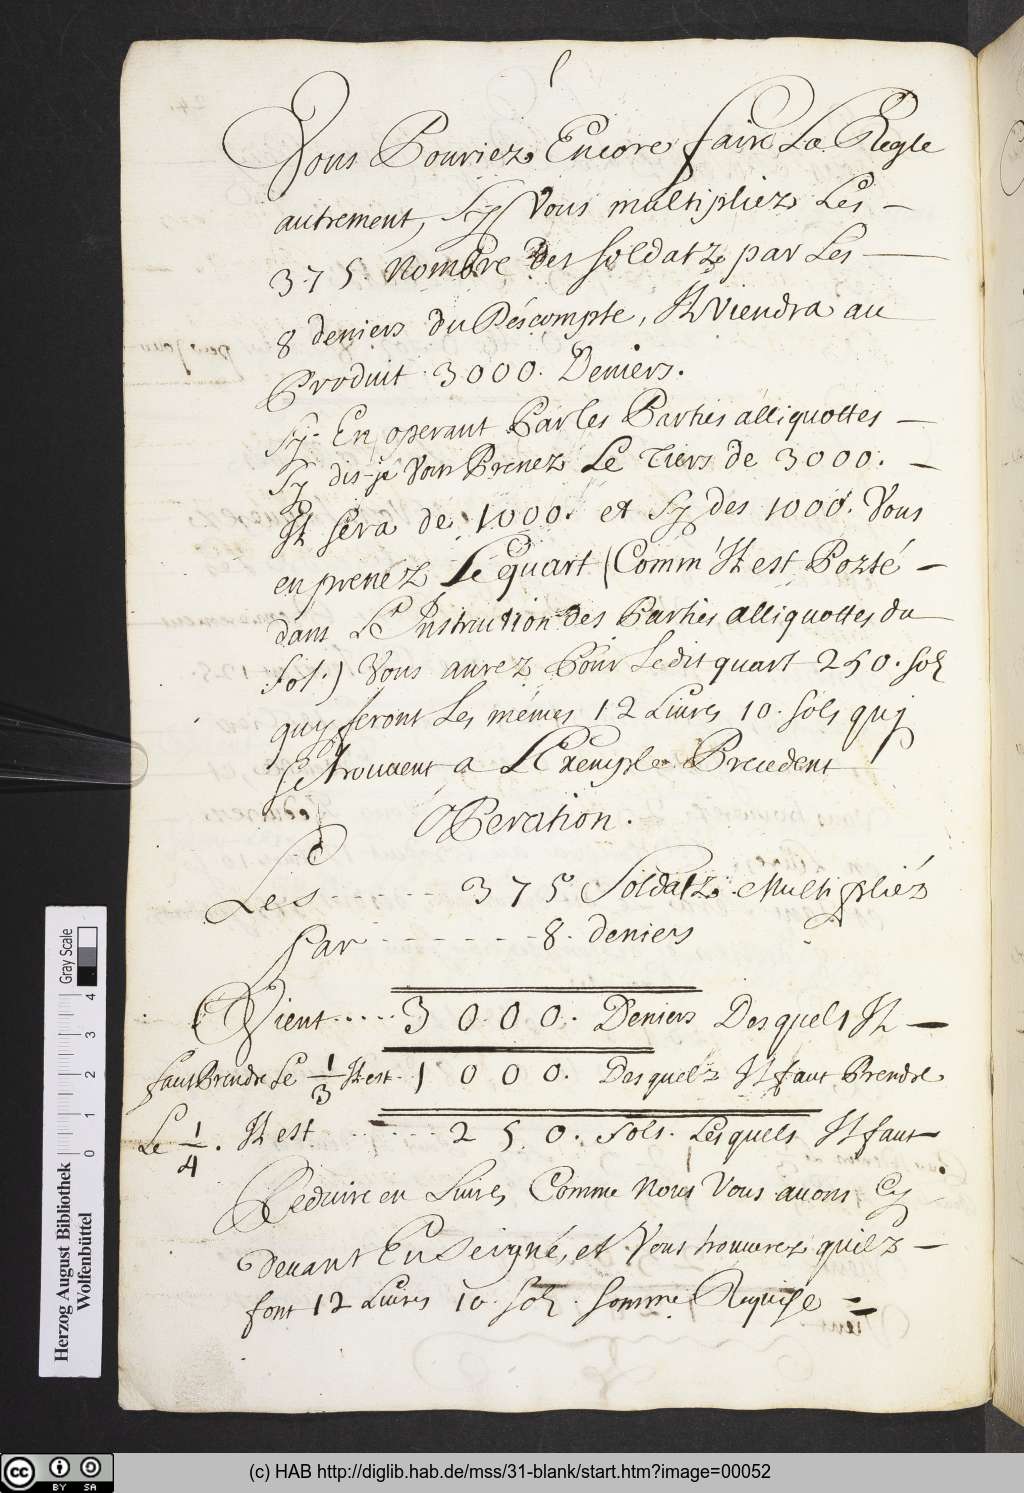 Vous Pouriez Encore faire La Regle
autrement, Sy Vous multipliez Les
375. Nombre Des soldatz par Les
8 deniers du Déscompte, Il Viendra au
Produit 3000. Deniers.
Sy. En operant Par les Parties alliquottes
Sy dis-je Vous Prenez Le Tiers de 3000.
Il sera de 1000. et Sy des 1000. Vous
en prenéz Le quart (Comm' Il est Pozté
dans L'Instruction Des Parties alliquottes du
sol.) Vous aurez Pour Ledit quart 250. solz
quy seront Les mémes 12 Livres 10. sols quy
Se trouvent a L'Exemple Precedent
Operation.
Les 375 Soldatz Multipliéz
Par 8. deniers
Vient 3000. Deniers Desquels Il
faut Prendre Le 1/3 Il est 1000. Desquelz Il faut Prendre
Le 1/4. Il est 250. Sols. Lesquels Il faut
Reduire en Livres, Comme Nous Vous avons Cy
Devant Enseigné, et Vous trouverez quilz
font 12 Livres 10. Solz. Somme Requise
Herzog August Bibliothek
Wolfenbüttel
Gray Scale
0 1 2 3 4
(c) HAB http://diglib.hab.de/mss/31-blank/start.htm?image=00052
cc BY SA